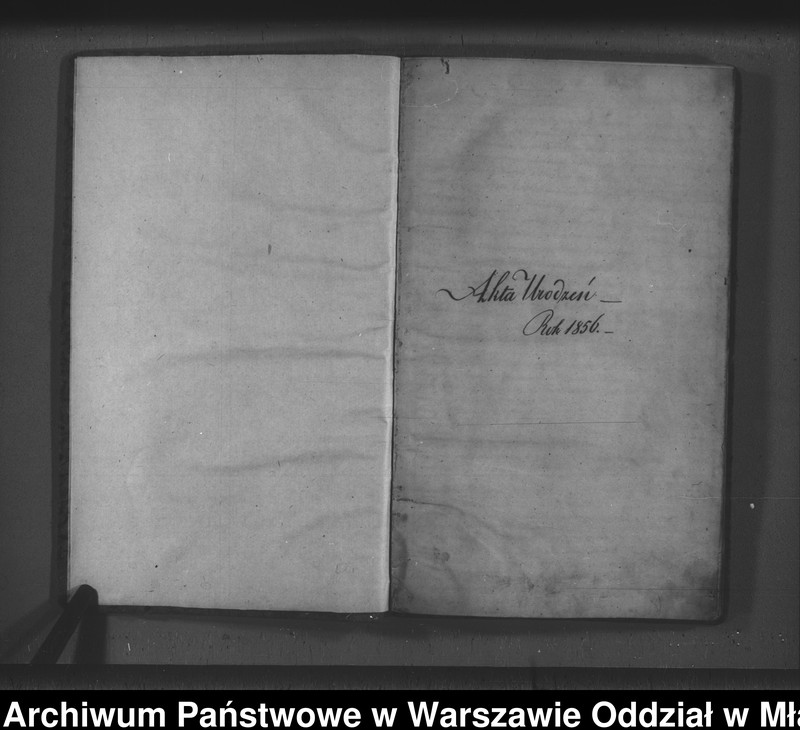 Akta Urodzeń
Rok 1856.
Archiwum Państwowe w Warszawie Oddział w Mła